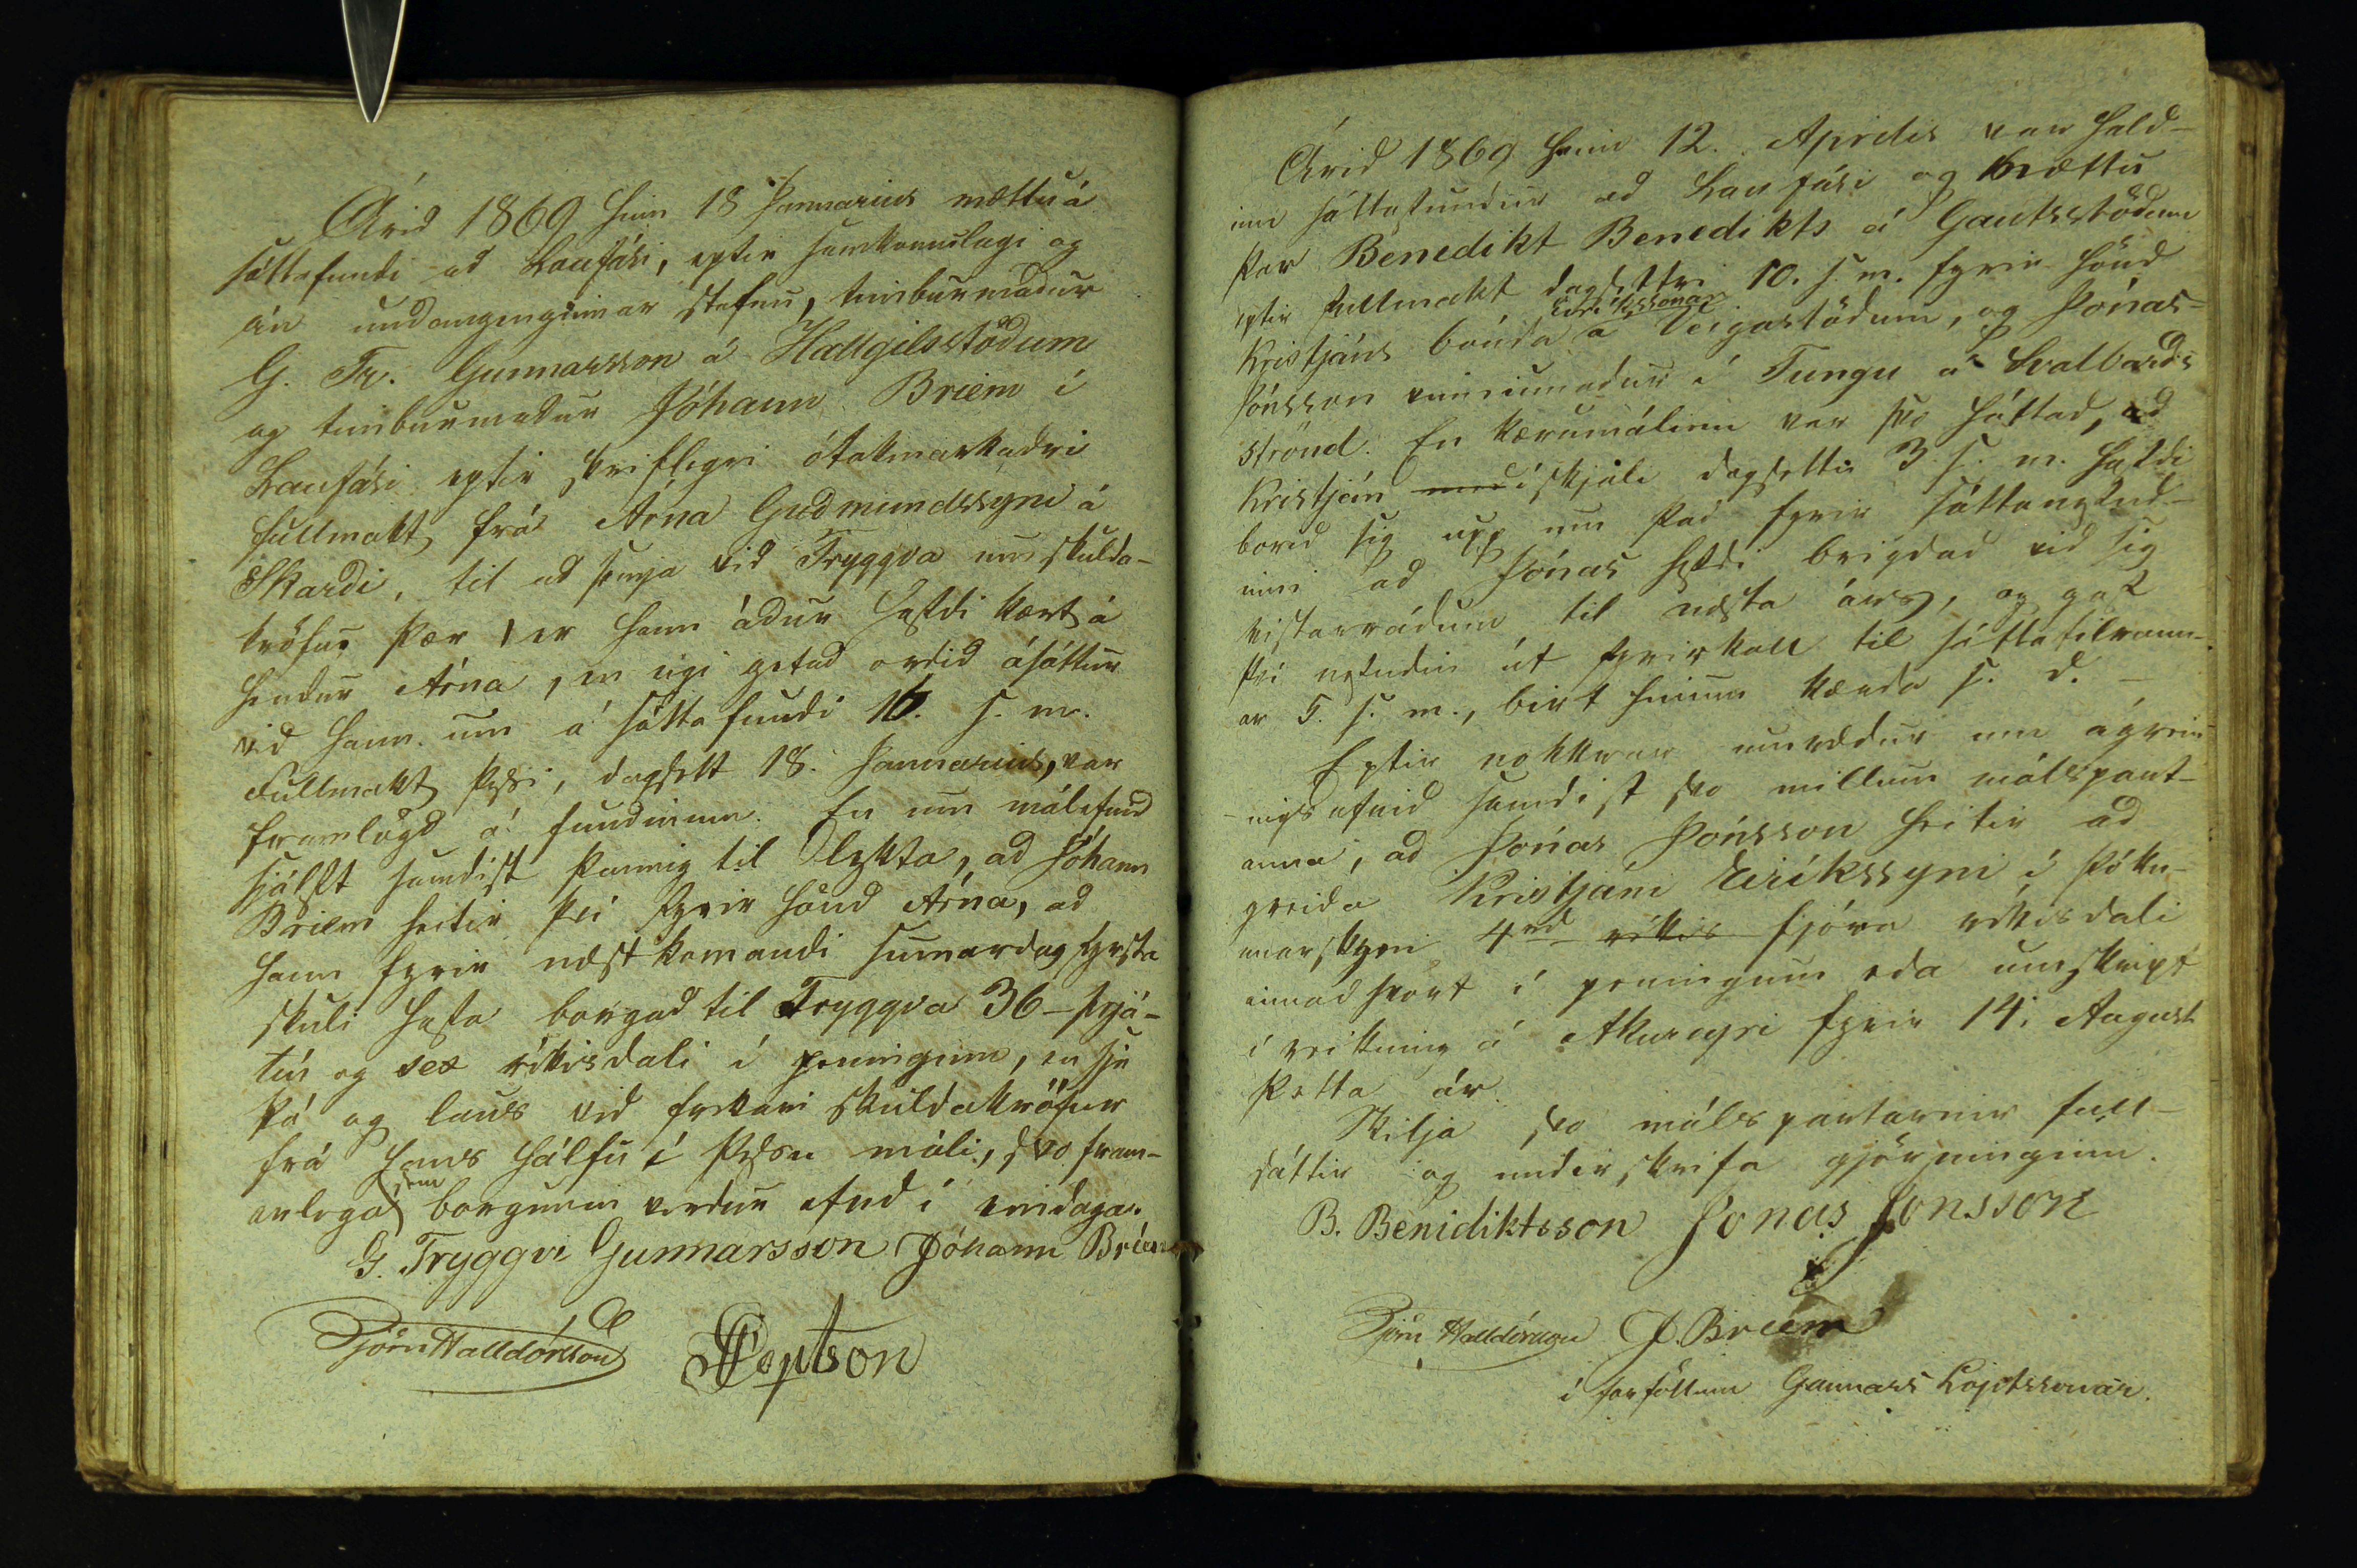 Árid 1869 hinn 18 Januarius mættu á
sáttafundi ad Laufási, eptir samkomulagi og
án undangenginnar stefnu, timburmadur
G. Tr. Gunnarsson á Hallgilsstödum
og timburmadur Jóhann Briem í
Laufási eptir skriflegri ótakmarkadri
fullmakt frá Árna Gudmundssyni á
Skardi, til ad semja vid Tryggva um skulda-
kröfur þær, er hann ádur hafdi kært á
hendur Árna, en eigi getad ordid ásáttur
vid hann um á sáttafundi 16. s. m.
Fullmakt þessi, dagsett 18. Januarius, var
framlögd á fundinum. En um málefnid
sjálft samdist þannig til lykta, ad Jóhann
Briem heitir því fyrir hönd Árna, ad
hann fyrir næstkomandi sumardag fyrsta
skuli hafa borgad til Tryggva 36 - þrjá-
tíu og sex ríkisdali í peningum, en sje
þá og laus vid frekari skuldakröfur
frá hans hálfu í þessu máli, svo fram-
arlega sem borgunin verdur efnd í eindaga.
G. Tryggvi Gunnarsson Jóhann Briem
Björn Halldórsson Loptson
Árid 1869 hinn 12. Aprilis var hald-
inn sáttafundur ad Laufási og mættu
þar Benedikt Benedikts á Gautsstödum
eptir fullmakt dagsettri 10. s. m. fyrir hönd
Kristjáns bónda Eiríkssonar á Veigastödum, og Jónas
Jónsson vinnumadur í Tungu á Svalbards
strönd. En kærumálinu var svo háttad, ad
Kristján med í skjali dagsettu 3. s. m. hafdi
borid sig upp um þad fyrir sáttanefnd-
inni ad Jónas hefdi brigdad vid sig
vistarrádum til næsta árs, og gaf
því nefndin út fyrirkall til sáttatilraun-
ar 5. s. m., birt hinum kærda s. d. -
Eptir nokkrar umrædur um ágrein-
ingsefnid samdist svo millum málspart-
anna, ad Jónas Jónsson heitir ad
greida Kristjáni Eiríkssyni í þókn-
unarskyni 4rd ríkis fjóra ríkisdali
annadhvort í peningum eda umskript
í reikning á Akureyri fyrir 14. August
þetta ár.
Skilja svo málspartarnir full-
sáttir og underskrifa gjörninginn.
B. Benidiktsson Jonas Jonsson
Björn Halldórsson J. Briem
í forföllum Gunnars Loptssonar.